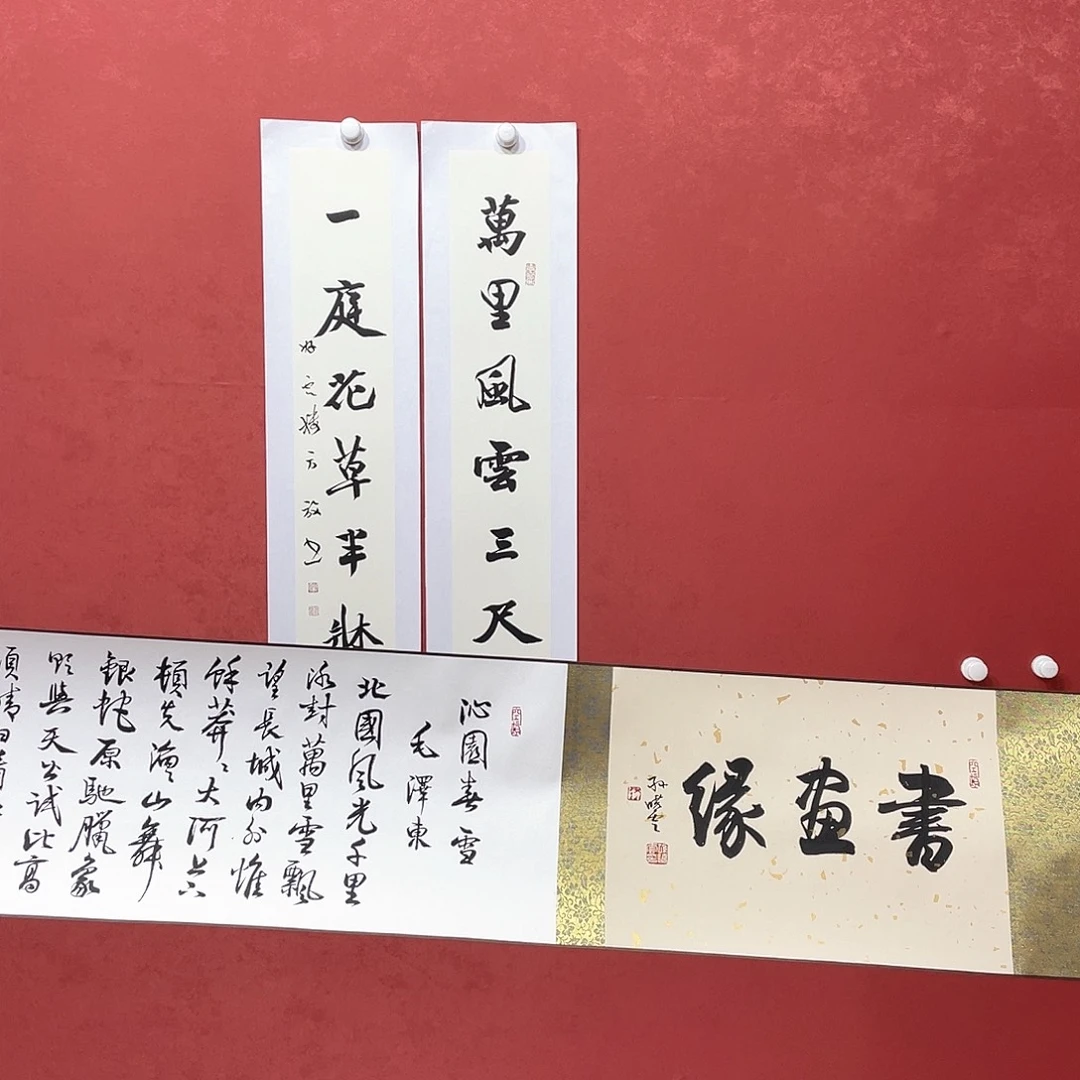 萬里風雲三尺
一庭花草半牀
書画緣
孙晓云
沁園春雪
毛澤東
北國风光千里
冰封萬里雪飄
望長城内外惟
餘莽〻大河上下
頓失滔〻山舞
銀蛇原馳臘象
欲與天公試比高
須晴日